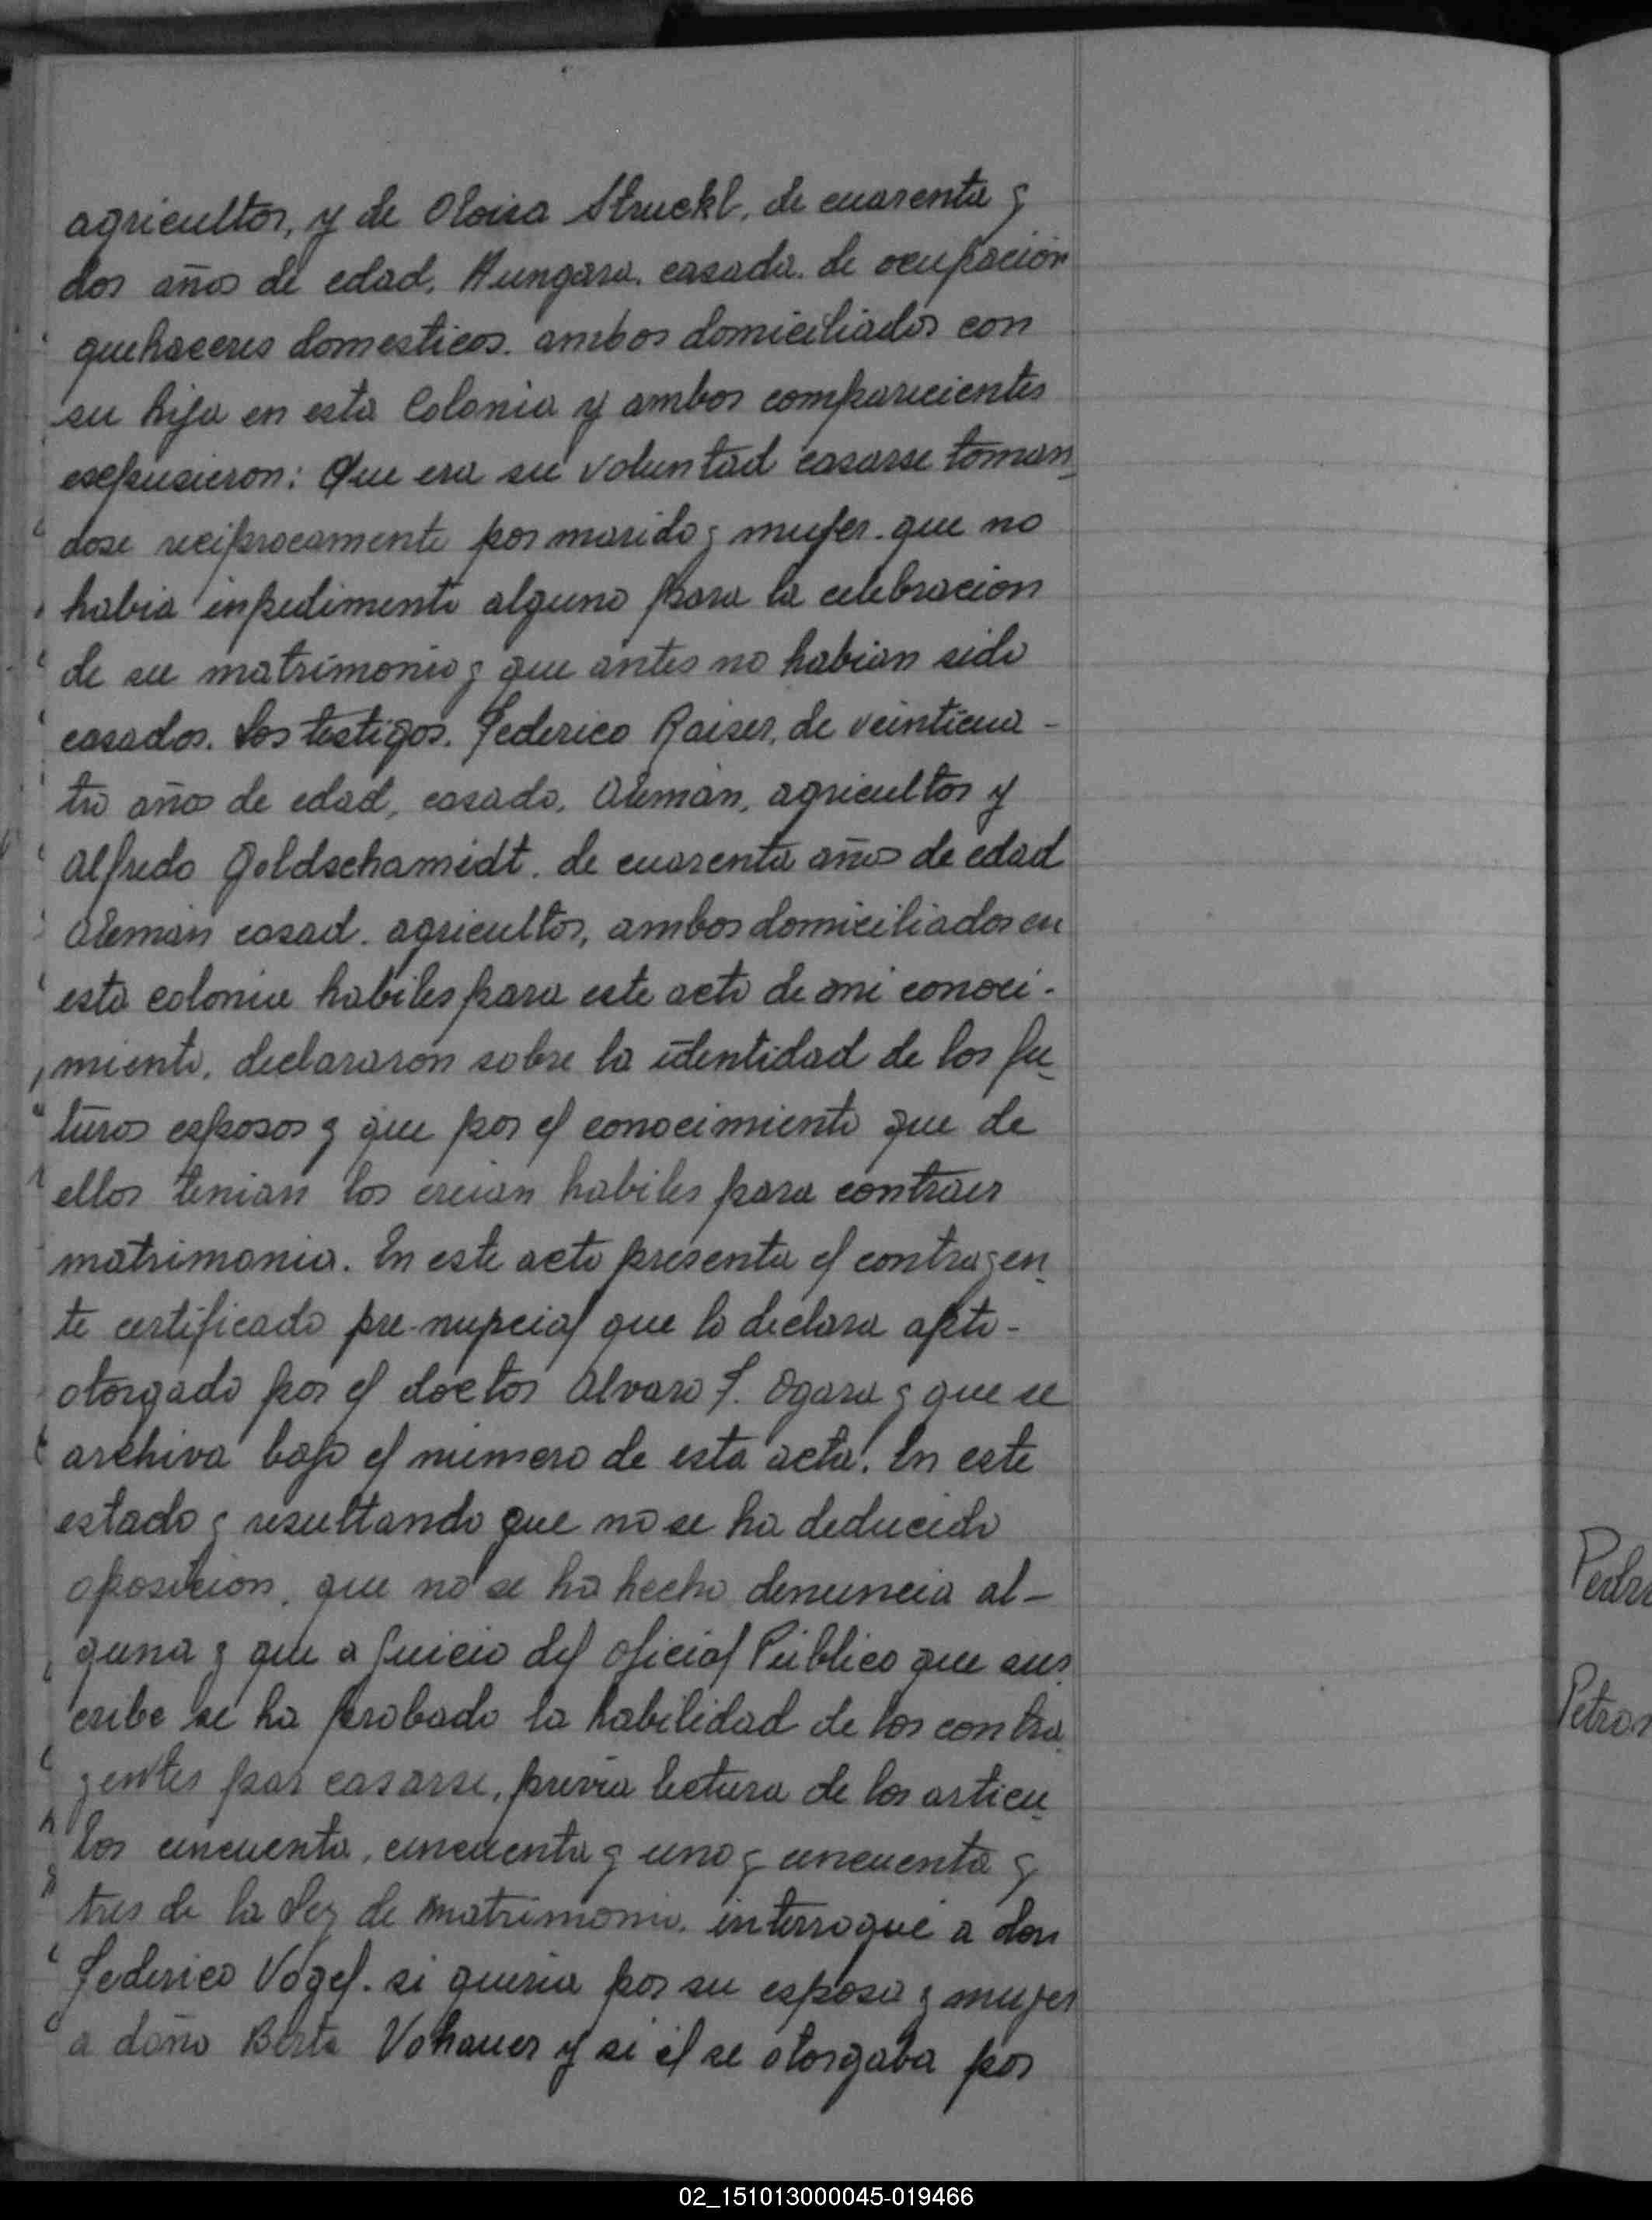 agricultor, y de Oloisa Struckl, de cuarenta y
dos años de edad, Hungara, casada, de ocupación
quehaceres domesticos, ambos domiciliados con
su hija en esta Colonia y ambos comparecientes
esepusieron: Que era su voluntad casarse toman-
dose reciprocamente por marido y mujer, que no
habia inpedimento alguno para la celebracion
de su matrimonio y que antes no habian sido
casados. Los testigos. Federico Raiser, de veinticua-
tro años de edad, casado, Alemán, agricultor y
Alfredo Goldschamidt, de cuarenta años de edad
Aleman casad. agricultor, ambos domiciliados en
esta colonia habiles para este acto de mi conoci-
miento, declararon sobre la identidad de los fu-
turos esposos y que por el conocimiento que de
ellos tenian los creian habiles para contraer
matrimonio. En este acto presenta el contrayen-
te certificado pre-nupcial que lo declara apto-
otorgado por el doctor Alvaro F. Ogara y que se
archiva bajo el número de esta acta. En este
estado y resultando que no se ha deducido
oposicion, que no se ha hecho denuncia al-
guna y que a juicio del oficial Público que sus-
cribe se ha probado la habilidad de los contra-
yentes par casarse, previa lectura de los articu-
los cincuenta, cincuenta y uno y cincuenta y
tres de la Ley de matrimonio, interrogué a don
Federico Vogel. si queria por su esposa y mujer
a doña Berta Vohauer y si él se otorgaba por
Pedro
Petron
02_151013000045-019466